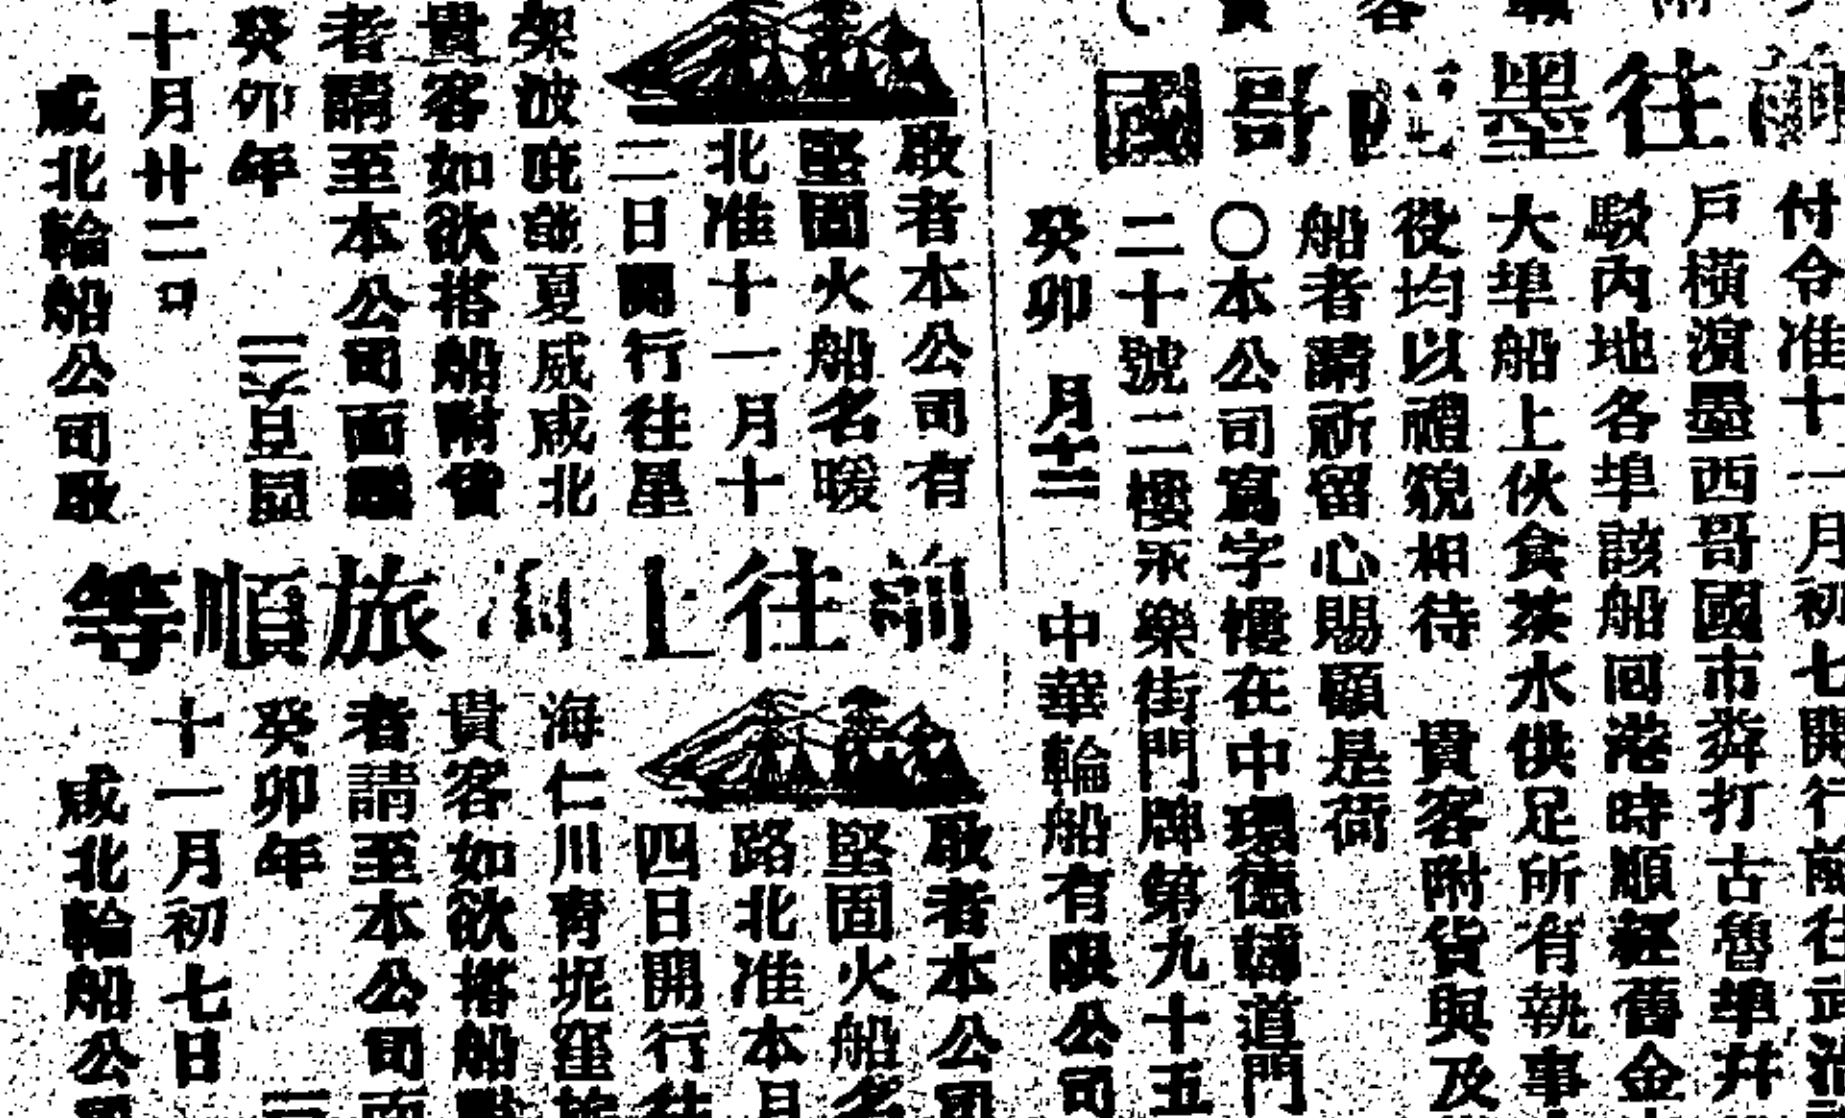 往墨西哥國
付令准十一月初七開行
戶橫濱墨西哥國市
駁內地各埠該船回港時順經舊金
大埠船上伙食茶水供足所有執事
役均以禮貌相待 貴客附貨與及
船者請祈留心賜顧是荷
〇本公司寫字樓在中環德輔道門
二十號二樓永樂街門牌第九十五
癸卯 月十二 中華輪船有限公司
啟者本公司有
堅固火船名暖
北准十一月十
二日開行往星
架波庇能夏威咸北
貴客如欲搭船附貨
者請至本公司面
癸卯年
十月廿二日
咸北輪船公司啟
前往上海旅順等
啟者本公司
堅固火船名
路北准本月
四日開行往
海仁川青坭窪旅
貴客如欲搭船
者請至本公司面
癸卯年
十一月初七日
咸北輪船公司